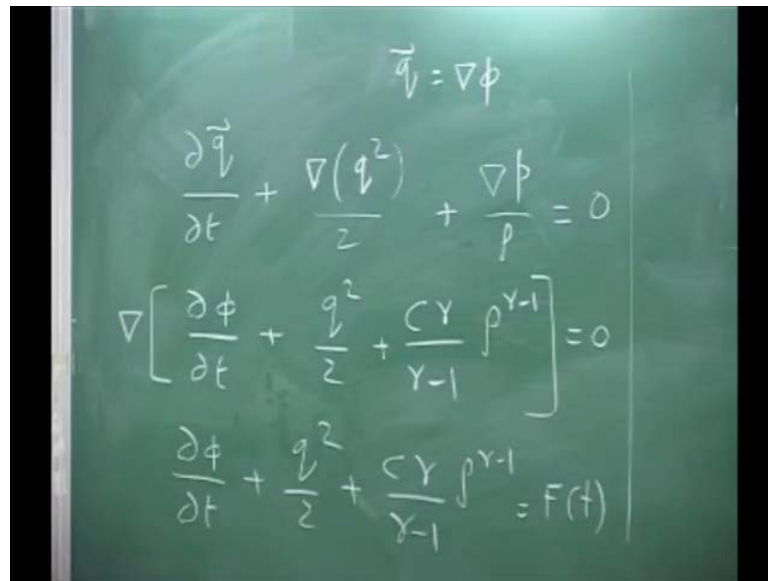 q⃗ = ∇φ
∂q⃗/∂t + ∇(q²)/2 + ∇p/ρ = 0
∇[∂φ/∂t + q²/2 + Cγ/(γ-1) ρ^(γ-1)] = 0
∂φ/∂t + q²/2 + Cγ/(γ-1) ρ^(γ-1) = F(t)